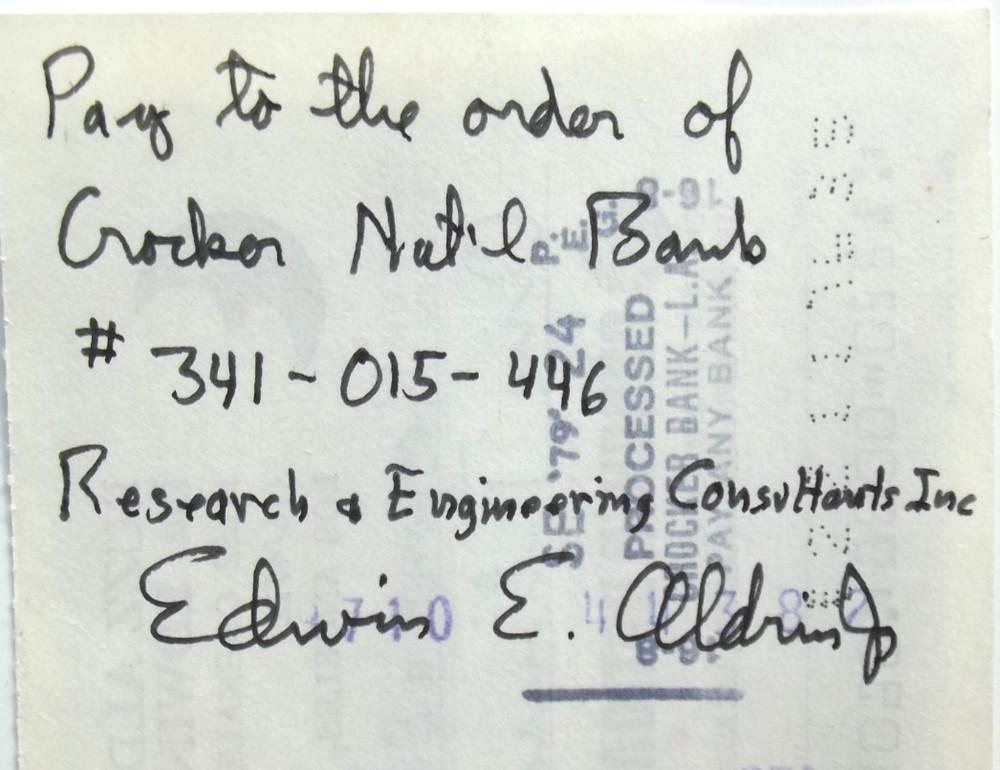 Pay to the order of
Crocker Nat'l Bank
# 341-015-446
Research & Engineering Consultants Inc
Edwin E. Aldrin Jr
P.
E.
G.
8-91
SE '79 24
PROCESSED
CROCKER BANK-L.A.
PAY ANY BANK